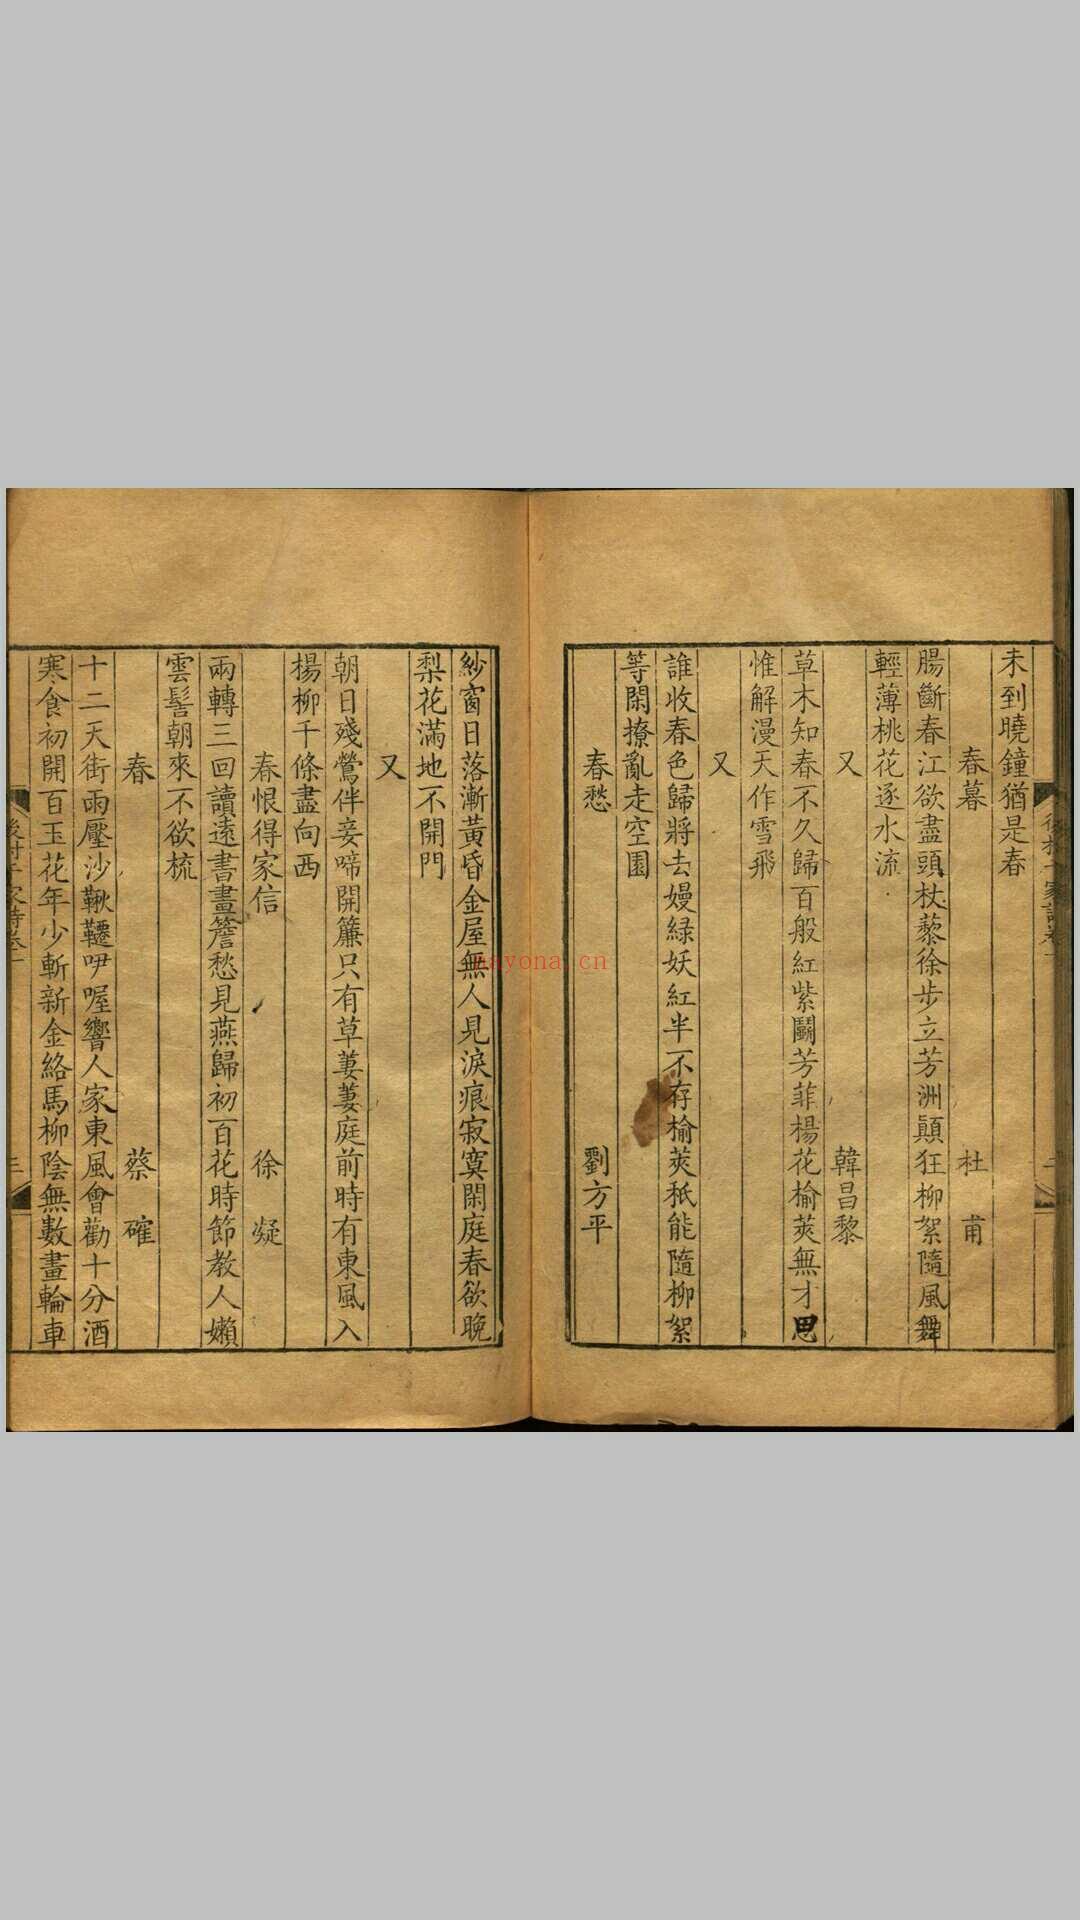 未到曉鐘猶是春
春暮　杜甫
腸斷春江欲盡頭杖藜徐步立芳洲顛狂柳絮隨風舞
輕薄桃花逐水流
又　韓昌黎
草木知春不久歸百般紅紫鬭芳菲楊花榆莢無才思
惟解漫天作雪飛
又
誰收春色歸將去嫚綠妖紅半不存榆莢秖能隨柳絮
等閑撩亂走空園
春愁　劉方平
紗窗日落漸黃昏金屋無人見淚痕寂寞閑庭春欲晚
梨花滿地不開門
又
朝日殘鶯伴妾啼開簾只有草萋萋庭前時有東風入
楊柳千條盡向西
春恨得家信　徐凝
兩轉三回讀遠書畫簷愁見燕歸初百花時節教人嬾
雲髻朝來不欲梳
春　蔡確
十二天街雨壓沙鞦韆咿喔響人家東風會勸十分酒
寒食初開百玉花年少斬新金絡馬柳陰無數畫輪車
三
nayona.cn